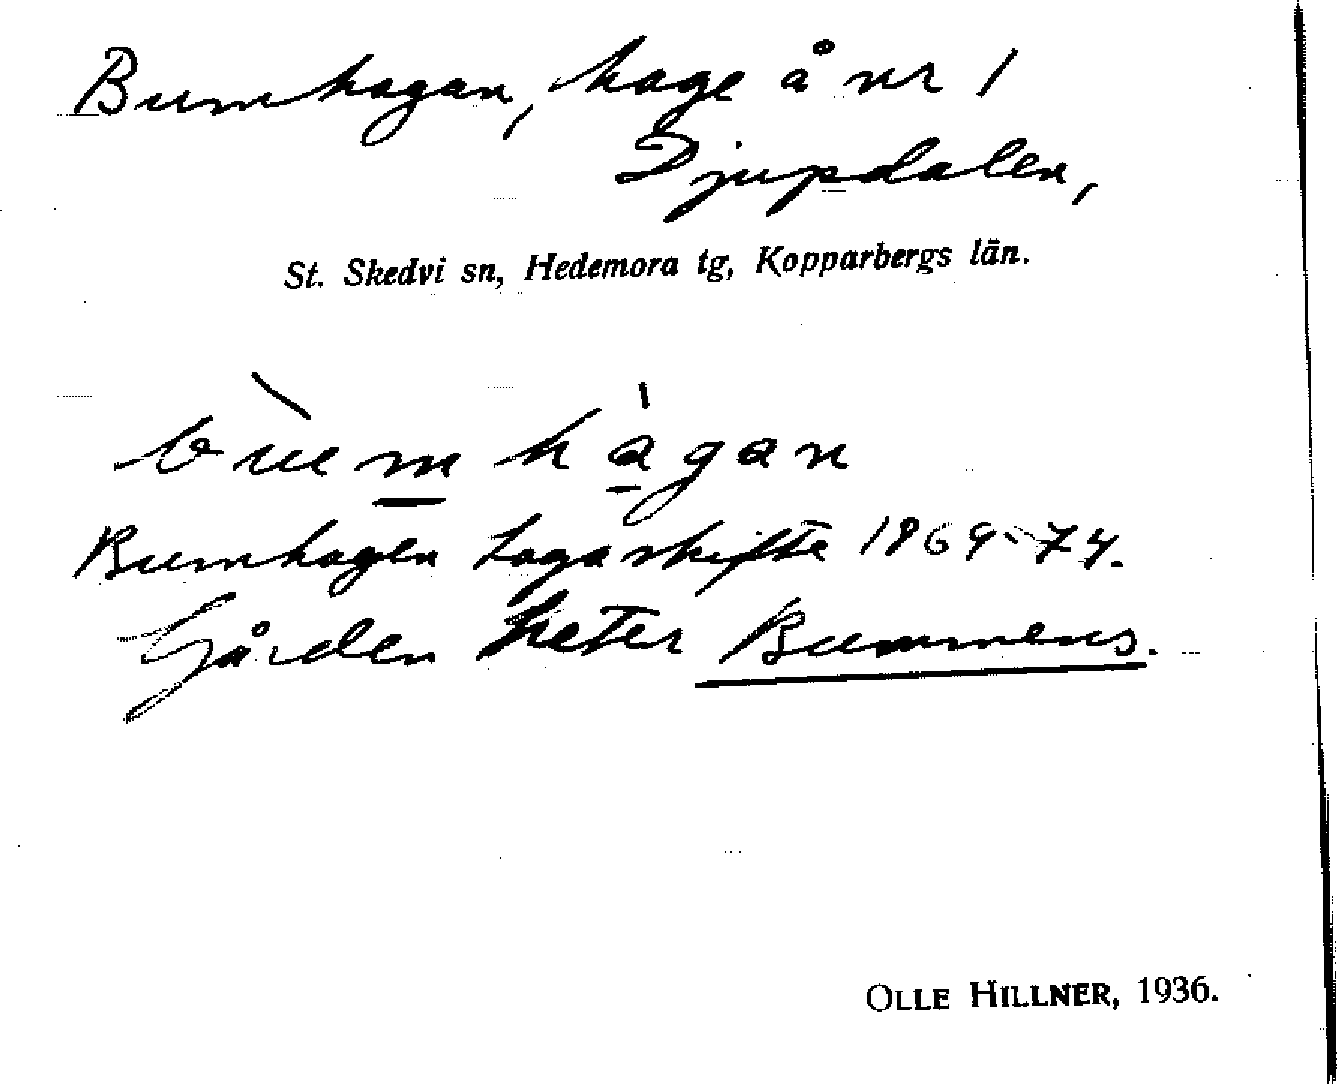 Bumhagan, hage å nr 1
Djupdalen,
St. Skedvi sn, Hedemora tg, Kopparbergs län.
bu̇mhȧgan
Bumhagen Laga skifte 1869-74.
Gården heter Bummens.
OLLE HILLNER, 1936.